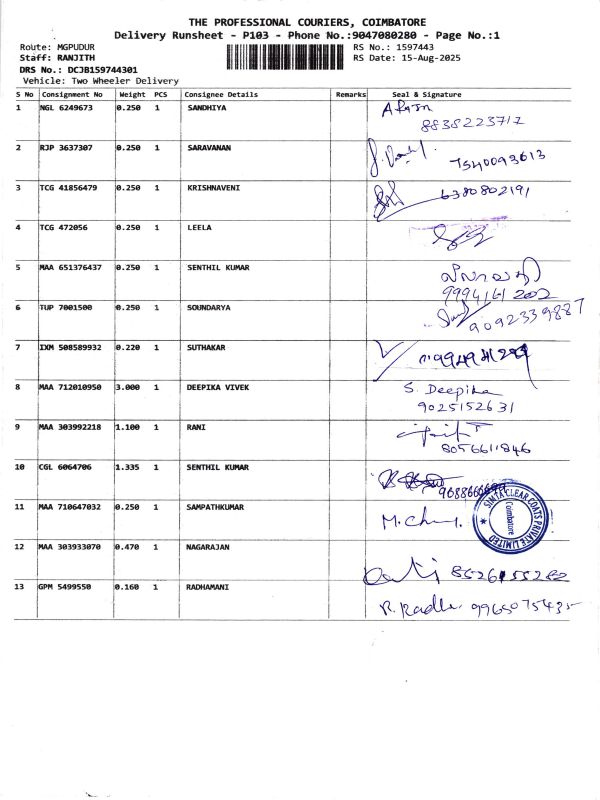 THE PROFESSIONAL COURIERS, COIMBATORE
Delivery Runsheet - P103 - Phone No.:9047080280 - Page No.:1
Route: MGPUDUR RS No.: 1597443
Staff: RANJITH RS Date: 15-Aug-2025
DRS No.: DCJB159744301
Vehicle: Two Wheeler Delivery
S No Consignment No Weight PCS Consignee Details Remarks Seal & Signature
1 NGL 6249673 0.250 1 SANDHIYA
8838223717
2 RJP 3637307 0.250 1 SARAVANAN
7540093613
3 TCG 41856479 0.250 1 KRISHNAVENI
6380802191
4 TCG 472056 0.250 1 LEELA
5 MAA 651376437 0.250 1 SENTHIL KUMAR
6 TUP 7001500 0.250 1 SOUNDARYA
9092339887
7 IXM 508589932 0.220 1 SUTHAKAR
8 MAA 712010950 3.000 1 DEEPIKA VIVEK S. Deepika
9025152631
9 MAA 303992218 1.100 1 RANI
8056611846
10 CGL 6064706 1.335 1 SENTHIL KUMAR
SIMTA CLEAR COATS PRIVATE LIMITED
Coimbatore
11 MAA 710647032 0.250 1 SAMPATHKUMAR
12 MAA 303933070 0.470 1 NAGARAJAN
13 GPM 5499550 0.160 1 RADHAMANI R. Radha 9965075435